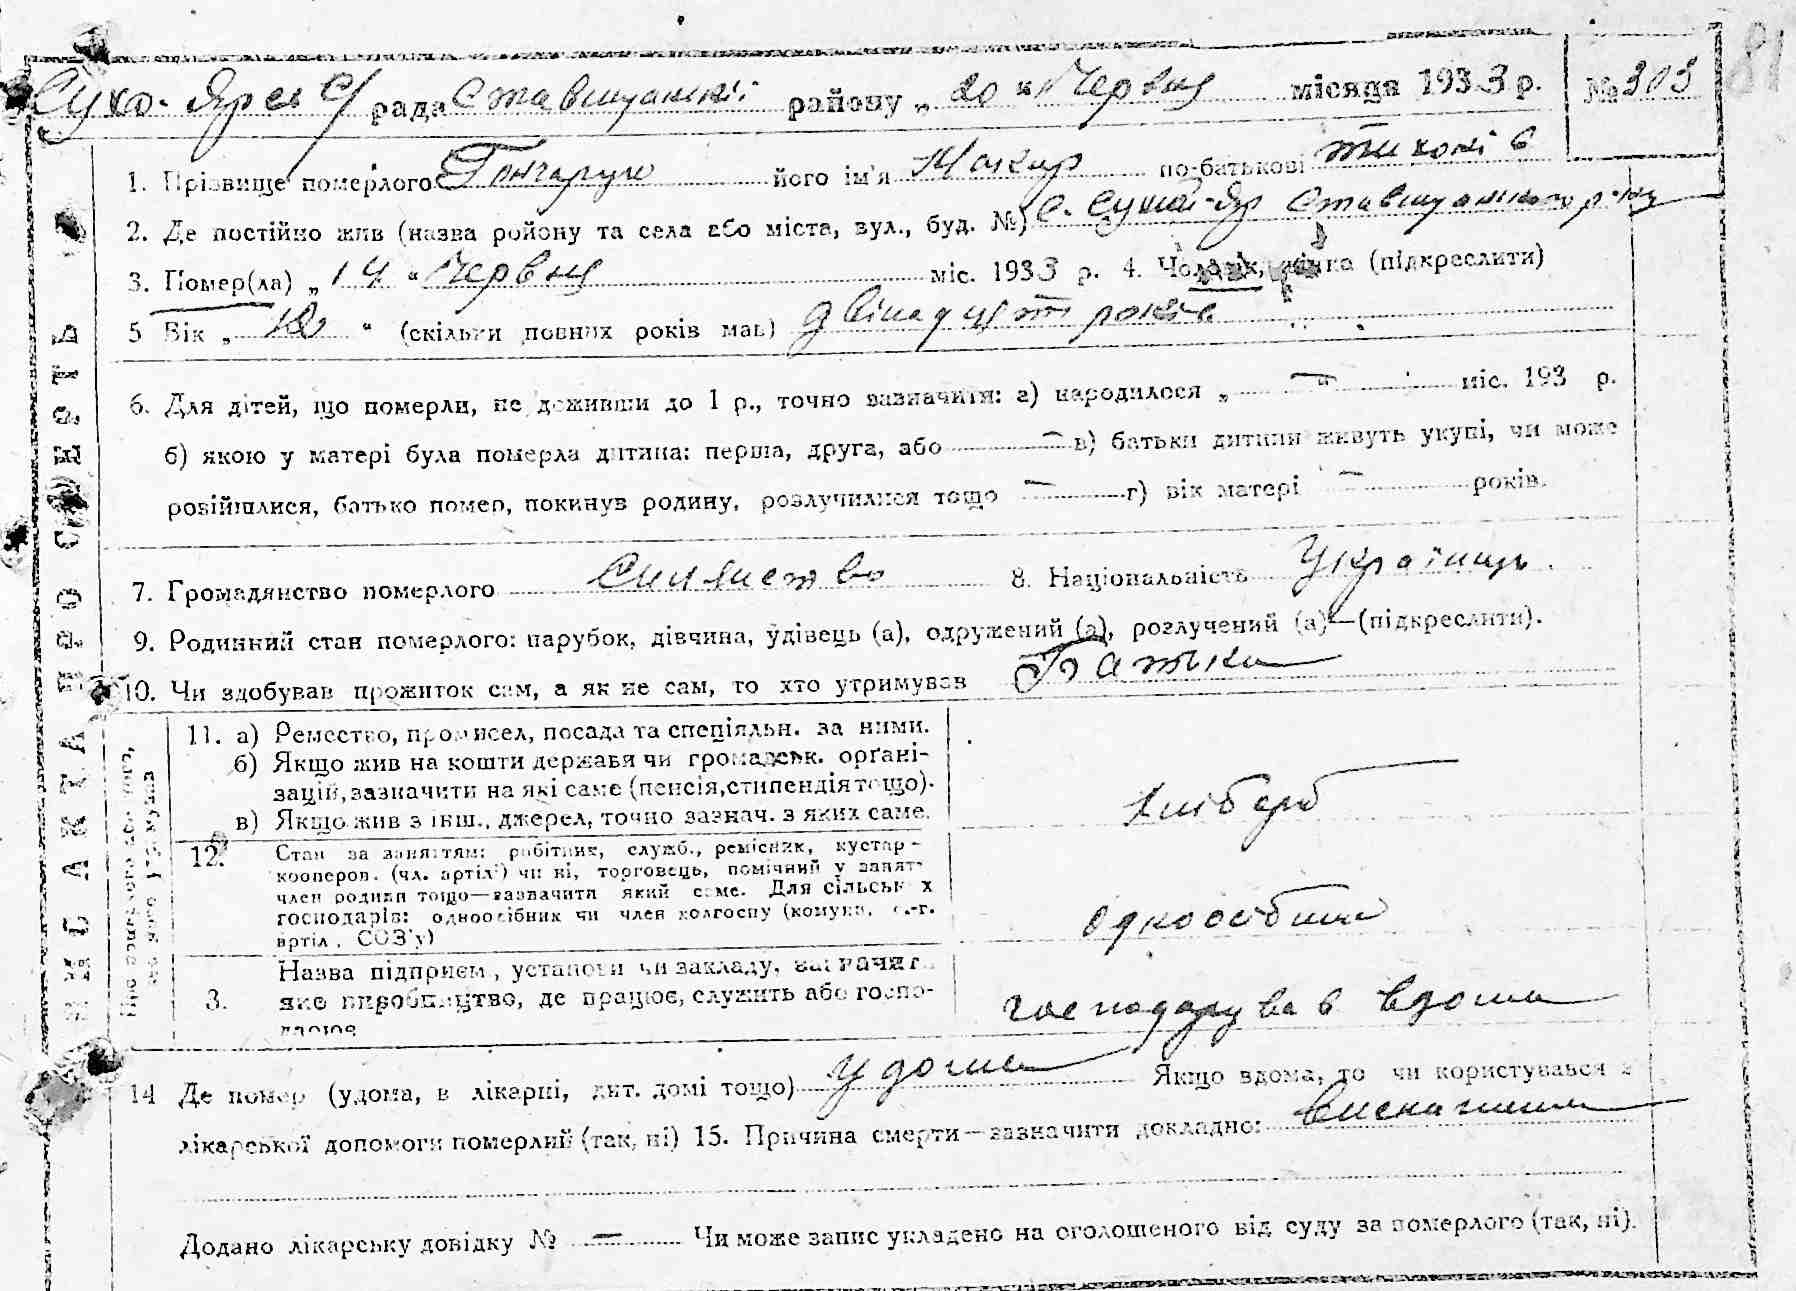 Сухо-Ярсь С/ рада Ставищанскі району „ 20 “ Червня місяця 1933 р. № 303
81
1. Прізвище померлого Гончарук його ім'я Макар по-батькові Тихонів
2. Де постійно жив (назва району та села або міста, вул., буд. №) С. Сухий-Яр Ставищанського р-ну
3. Помер(ла) „ 14 “ Червня міс. 1933 р. 4. Чоловік, жінка (підкреслити)
5 Вік „ 12 “ (скільки повних років мав) двінацять років
6. Для дітей, що померли, не доживши до 1 р., точно зазначити: а) народилося „ — “ міс. 193 р.
б) якою у матері була померла дитина: перша, друга, або — в) батьки дитини живуть укупі, чи може
розійшлися, батько помер, покинув родину, розлучилися тощо — г) вік матері — років.
7. Громадянство померлого 8. Національність Українць
9. Родинний стан померлого: парубок, дівчина, удівець (а), одружений (а), розлучений (а)—(підкреслити).
10. Чи здобував прожиток сам, а як не сам, то хто утримував Батьки
11. а) Ремество, промисел, посада та спеціяльн. за ними.
б) Якщо жив на кошти держави чи громадськ. орґані-
зацій, зазначити на які саме (пенсія, стипендія тощо).
в) Якщо жив з інш., джерел, точно зазнач. з яких саме.
Хлібороб
12. Стан за заняттям: робітник, служб., ремісник, кустар-
кооперов. (чл. артілі) чи ні, торговець, помічний у занят.
член родини тощо—зазначити який саме. Для сільських
господарів: одноосібник чи член колгоспу (комуни, с.-г.
артіл., СОЗ'у)
одноосібник
3. Назва підприєм., установи чи закладу, зазначити
яке виробництво, де працює, служить або госпо-
дарює
господарував вдома
14 Де помер (удома, в лікарні, дит. домі тощо) удома Якщо вдома, то чи користувався з
лікарської допомоги померлий (так, ні) 15. Причина смерти—зазначити докладно:
Додано лікарську довідку № — Чи може запис укладено на оголошеного від суду за померлого (так, ні).
ЗАПИС АКТА ПРО СМЕРТЬ